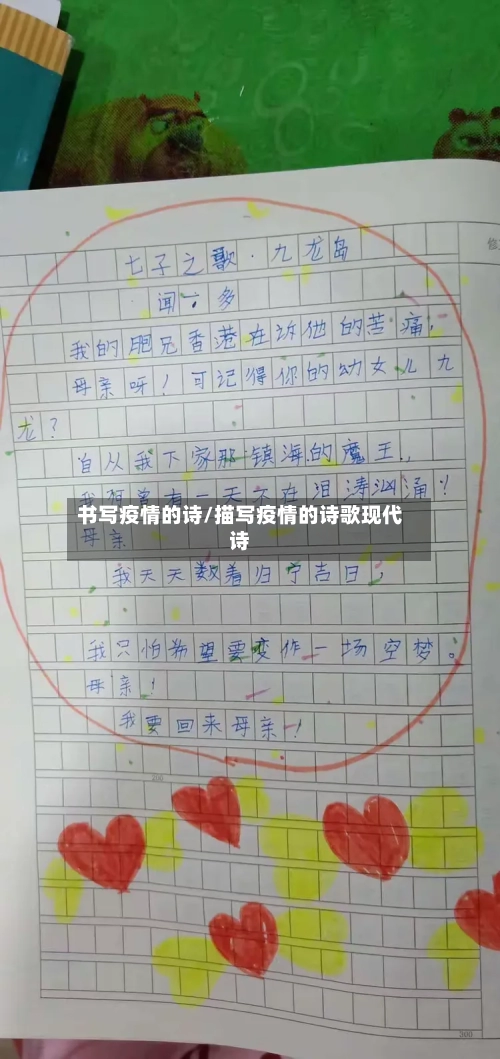 七子之歌·九龙岛
闻一多
我的胞兄香港在诉他的苦痛,
母亲呀!可记得你的幼女儿九
龙?
自从我下嫁那镇海的魔王,
我何曾有一天不在泪涛汹涌!
书写疫情的诗/描写疫情的诗歌现代
诗
母亲
我天天数着归宁吉日,
我只怕希望要变作一场空梦。
母亲!
我要回来母亲!
300